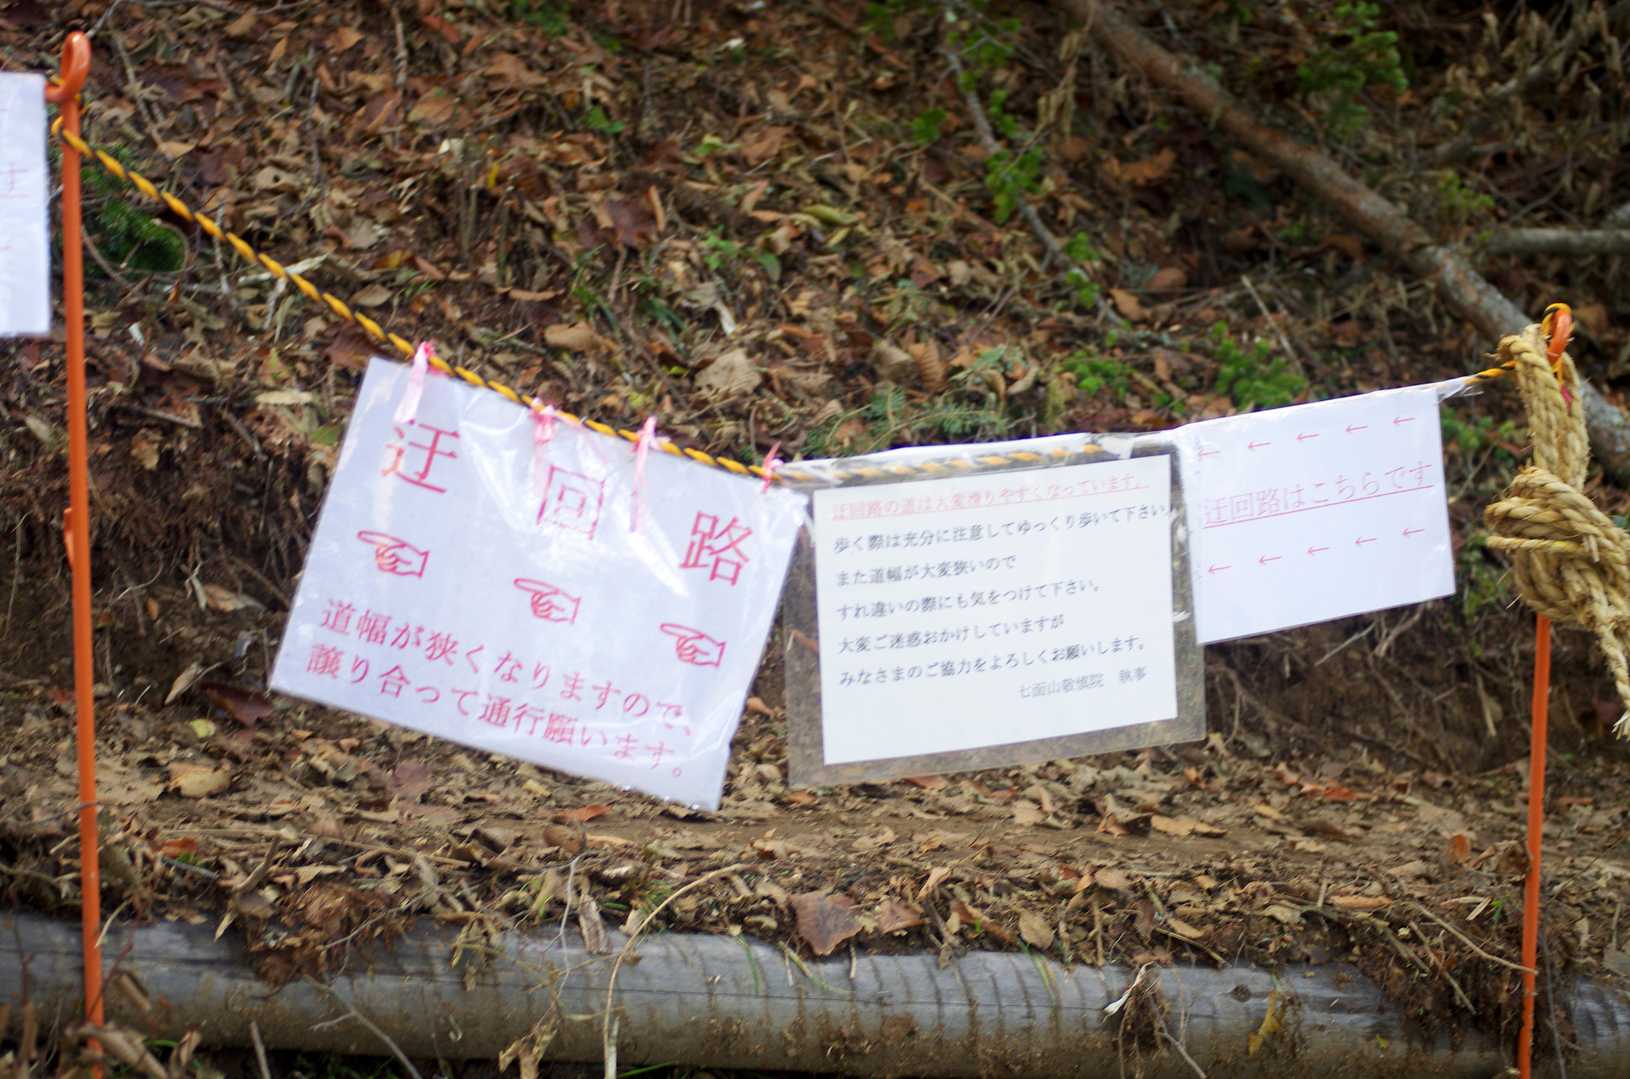 迂回路
☜ ☜ ☜
道幅が狭くなりますので、
譲り合って通行願います。
迂回路の道は大変滑りやすくなっています。
歩く際は充分に注意してゆっくり歩いて下さい
また道幅が大変狭いので
すれ違いの際にも気をつけて下さい。
大変ご迷惑おかけしていますが
みなさまのご協力をよろしくお願いします。
七面山敬慎院 執事
← ← ← ← ←
迂回路はこちらです
← ← ← ← ←